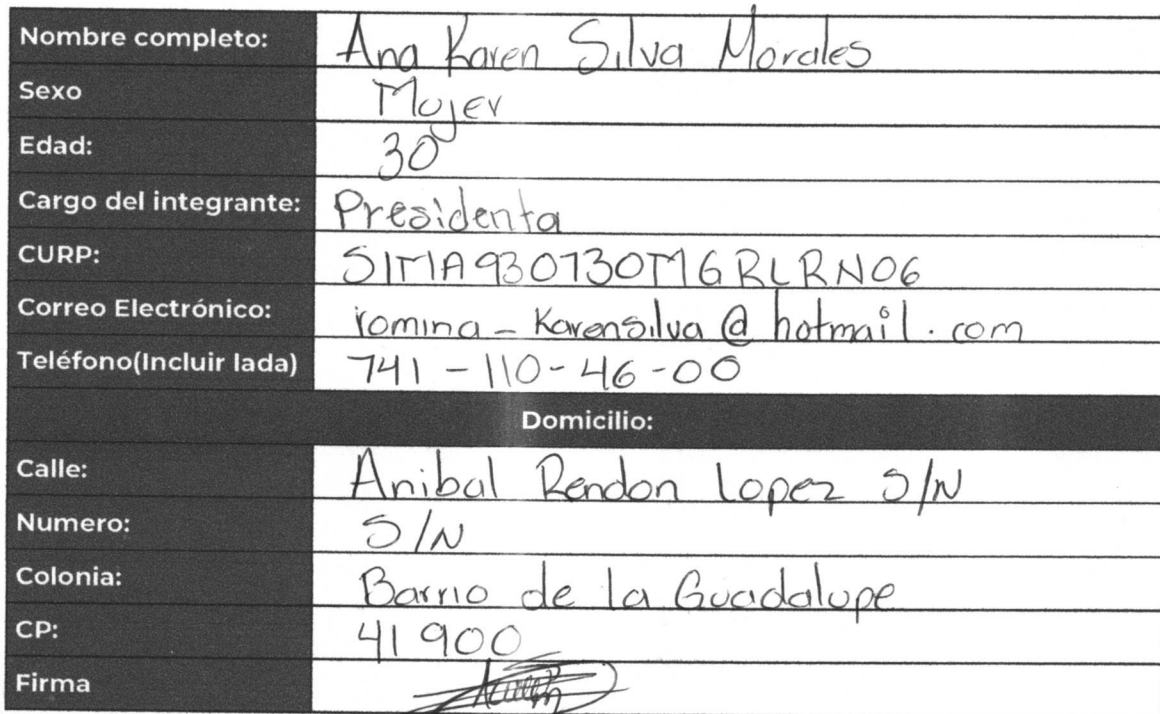 Nombre completo: Ana Karen Silva Morales
Sexo Mujer
Edad: 30
Cargo del integrante: Presidenta
CURP: SIMA930730MGRLRN06
Correo Electrónico: romina_Karensilva@hotmail.com
Teléfono(Incluir lada) 741-110-46-00
Domicilio:
Calle: Anibal Rendon Lopez S/N
Numero: S/N
Colonia: Barrio de la Guadalupe
CP: 41900
Firma